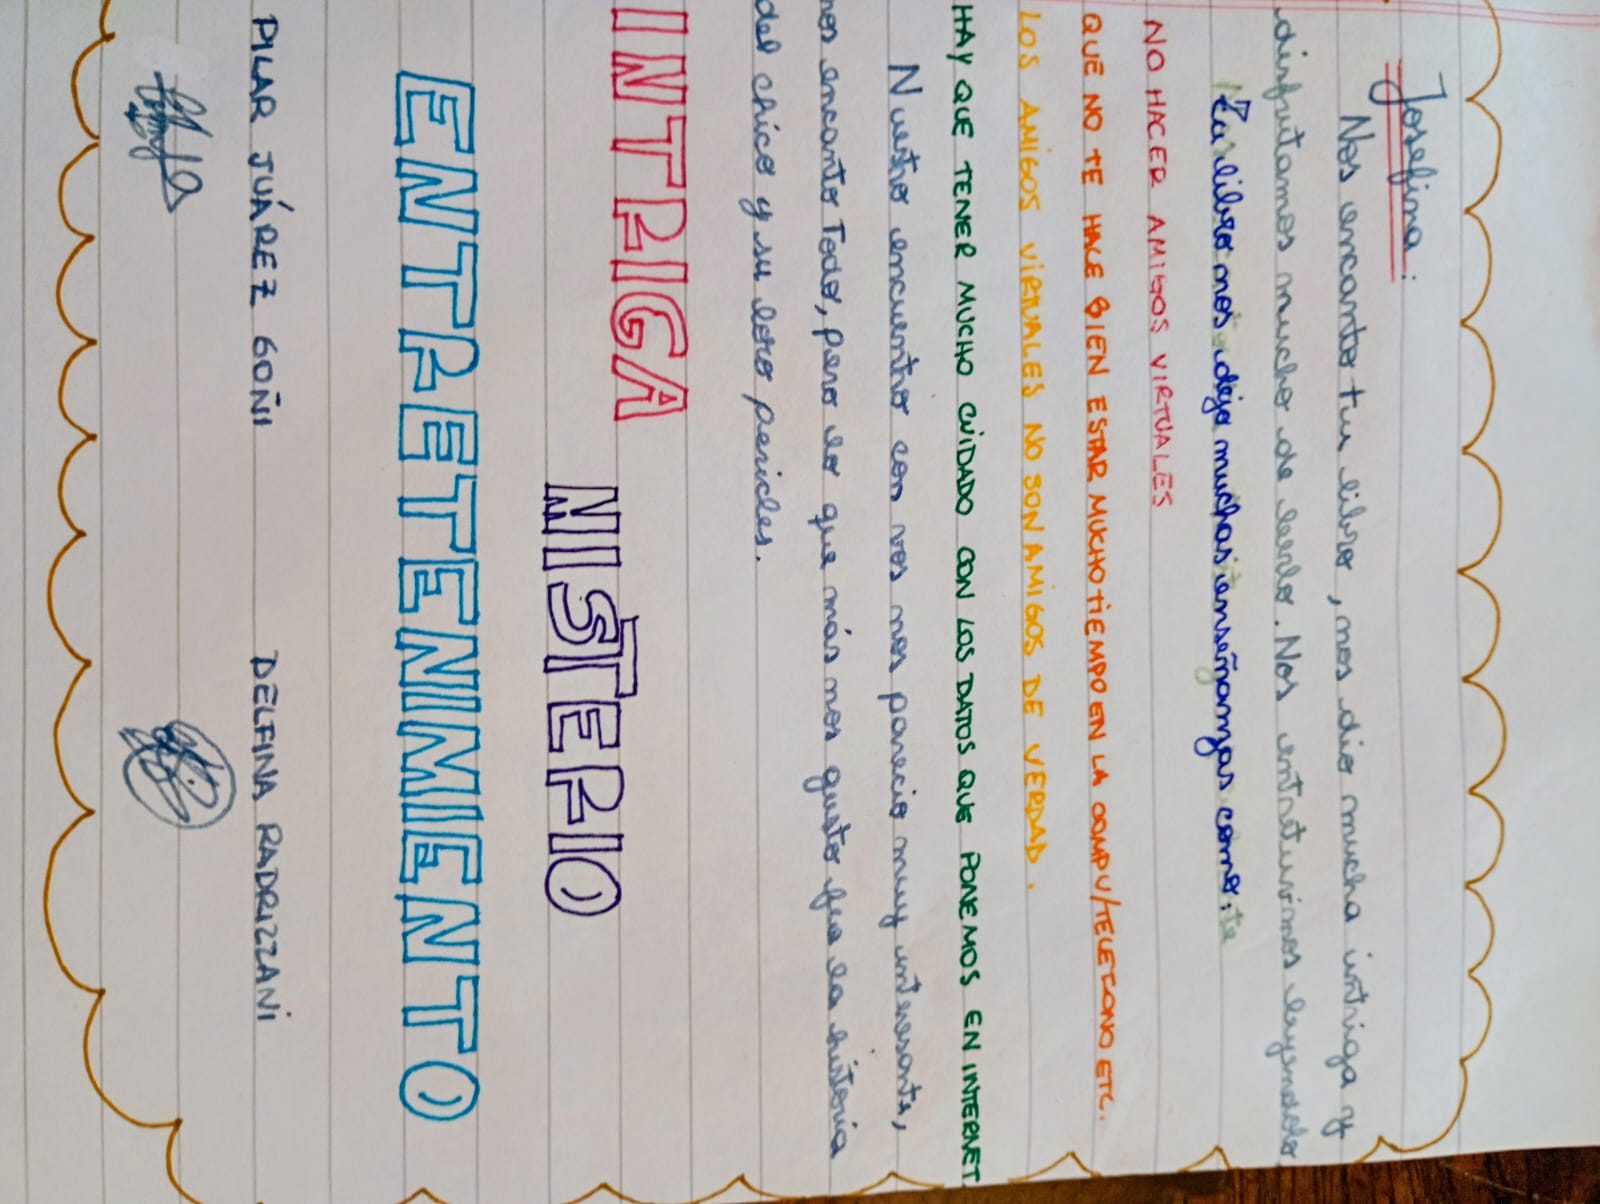 Josefina:
Nos encanto tu libro, nos dio mucha intriga y
disfrutamos mucho de leerlo. Nos entretuvimos leyendolo.
Tu libro nos dejo muchas enseñanzas como:
NO HACER AMIGOS VIRTUALES
QUE NO TE HACE BIEN ESTAR MUCHO TIEMPO EN LA COMPU/TELEFONO ETC.
LOS AMIGOS VIRTUALES NO SON AMIGOS DE VERDAD.
HAY QUE TENER MUCHO CUIDADO CON LOS DATOS QUE PONEMOS EN INTERNET.
Nuestro encuentro con vos nos parecio muy interesante,
nos encanto todo, pero lo que más nos gusto fue la historia
del chico y su loro pericles.
INTRIGA
MISTERIO
ENTRETENIMIENTO
PILAR JUÁREZ GOÑI DELFINA RADRIZZANI